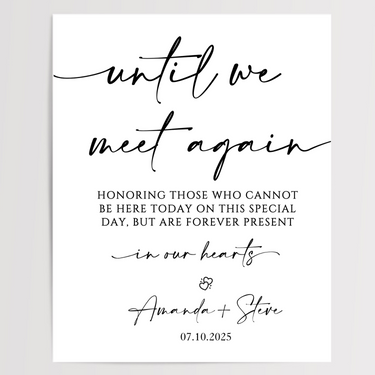 until we
meet again
HONORING THOSE WHO CANNOT
BE HERE TODAY ON THIS SPECIAL
DAY, BUT ARE FOREVER PRESENT
in our hearts
Amanda + Steve
07.10.2025